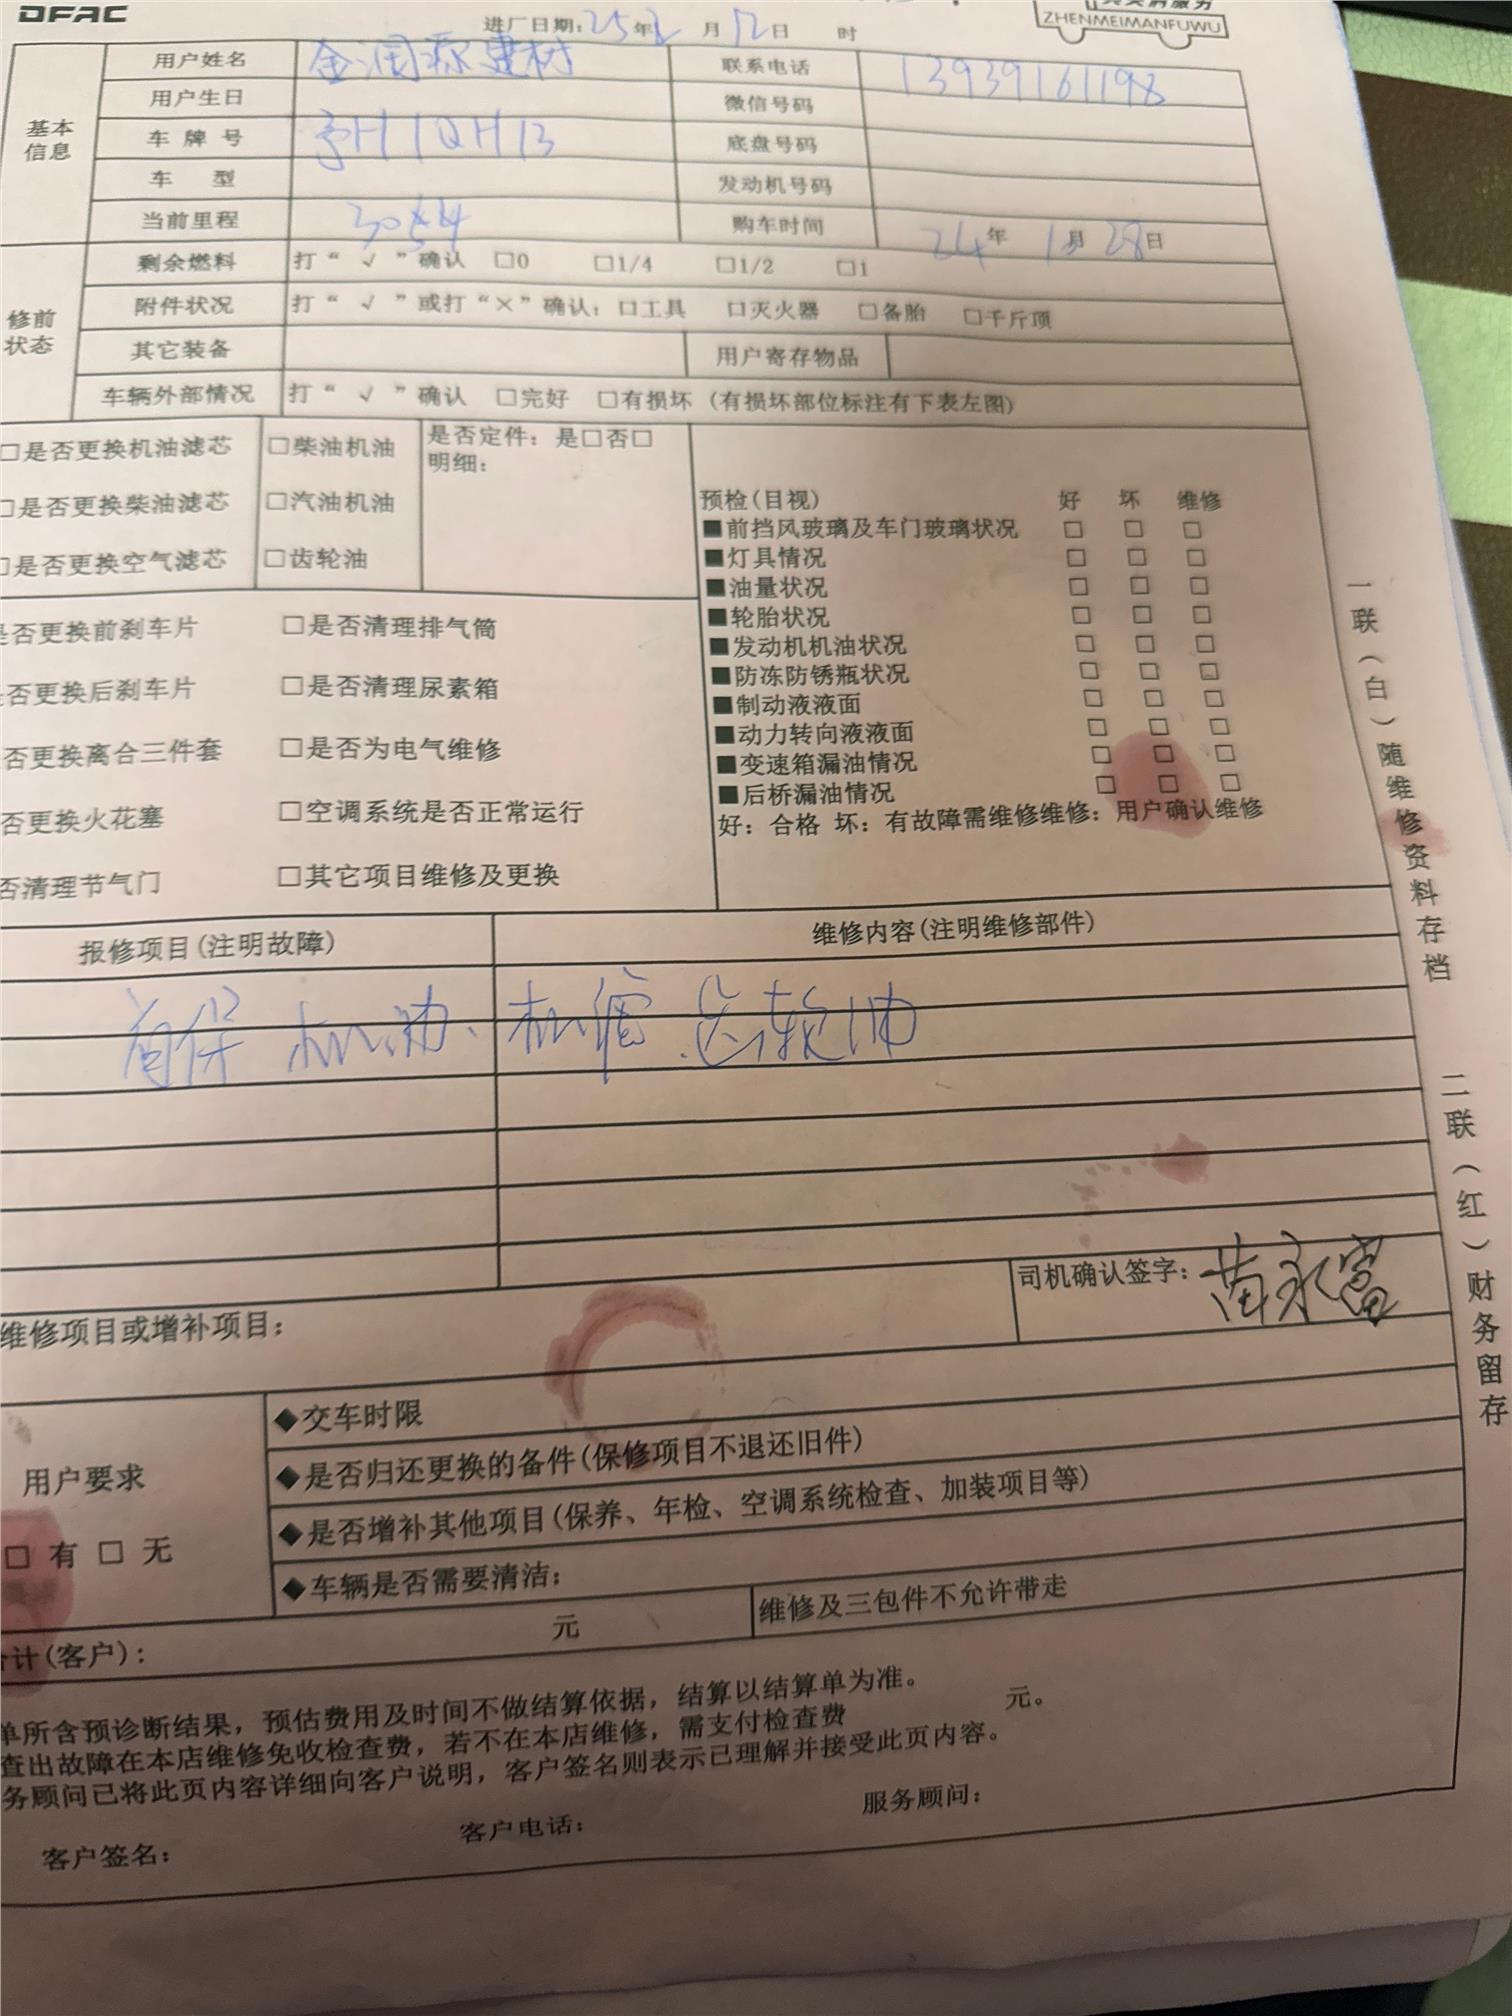 DFAC
进厂日期：25年2月12日 时
ZHENMEIMANFUWU
基本信息
用户姓名 金润源建材 联系电话 13939161198
用户生日 微信号码
车牌号 豫H1QH13 底盘号码
车 型 发动机号码
当前里程 3054 购车时间 24年1月28日
修前状态
剩余燃料 打“√”确认 □0 □1/4 □1/2 □1
附件状况 打“√”或打“×”确认：□工具 □灭火器 □备胎 □千斤顶
其它装备 用户寄存物品
车辆外部情况 打“√”确认 □完好 □有损坏（有损坏部位标注有下表左图）
□是否更换机油滤芯 □柴油机油 是否定件：是□否□
明细：
□是否更换柴油滤芯 □汽油机油
□是否更换空气滤芯 □齿轮油
是否更换前刹车片 □是否清理排气筒
是否更换后刹车片 □是否清理尿素箱
否更换离合三件套 □是否为电气维修
否更换火花塞 □空调系统是否正常运行
否清理节气门 □其它项目维修及更换
预检(目视) 好 坏 维修
■前挡风玻璃及车门玻璃状况 □ □ □
■灯具情况 □ □ □
■油量状况 □ □ □
■轮胎状况 □ □ □
■发动机机油状况 □ □ □
■防冻防锈瓶状况 □ □ □
■制动液液面 □ □ □
■动力转向液液面 □ □ □
■变速箱漏油情况 □ □ □
■后桥漏油情况 □ □ □
好：合格 坏：有故障需维修维修：用户确认维修
报修项目(注明故障) 维修内容(注明维修部件)
首保 机油、机滤
司机确认签字：苗永富
维修项目或增补项目：
用户要求
□ 有 □ 无
◆交车时限
◆是否归还更换的备件(保修项目不退还旧件)
◆是否增补其他项目(保养、年检、空调系统检查、加装项目等)
◆车辆是否需要清洁：
合计(客户)： 元 维修及三包件不允许带走
单所含预诊断结果，预估费用及时间不做结算依据，结算以结算单为准。
查出故障在本店维修免收检查费，若不在本店维修，需支付检查费 元。
务顾问已将此页内容详细向客户说明，客户签名则表示已理解并接受此页内容。
客户签名： 客户电话： 服务顾问：
一联（白）随维修资料存档
二联（红）财务留存